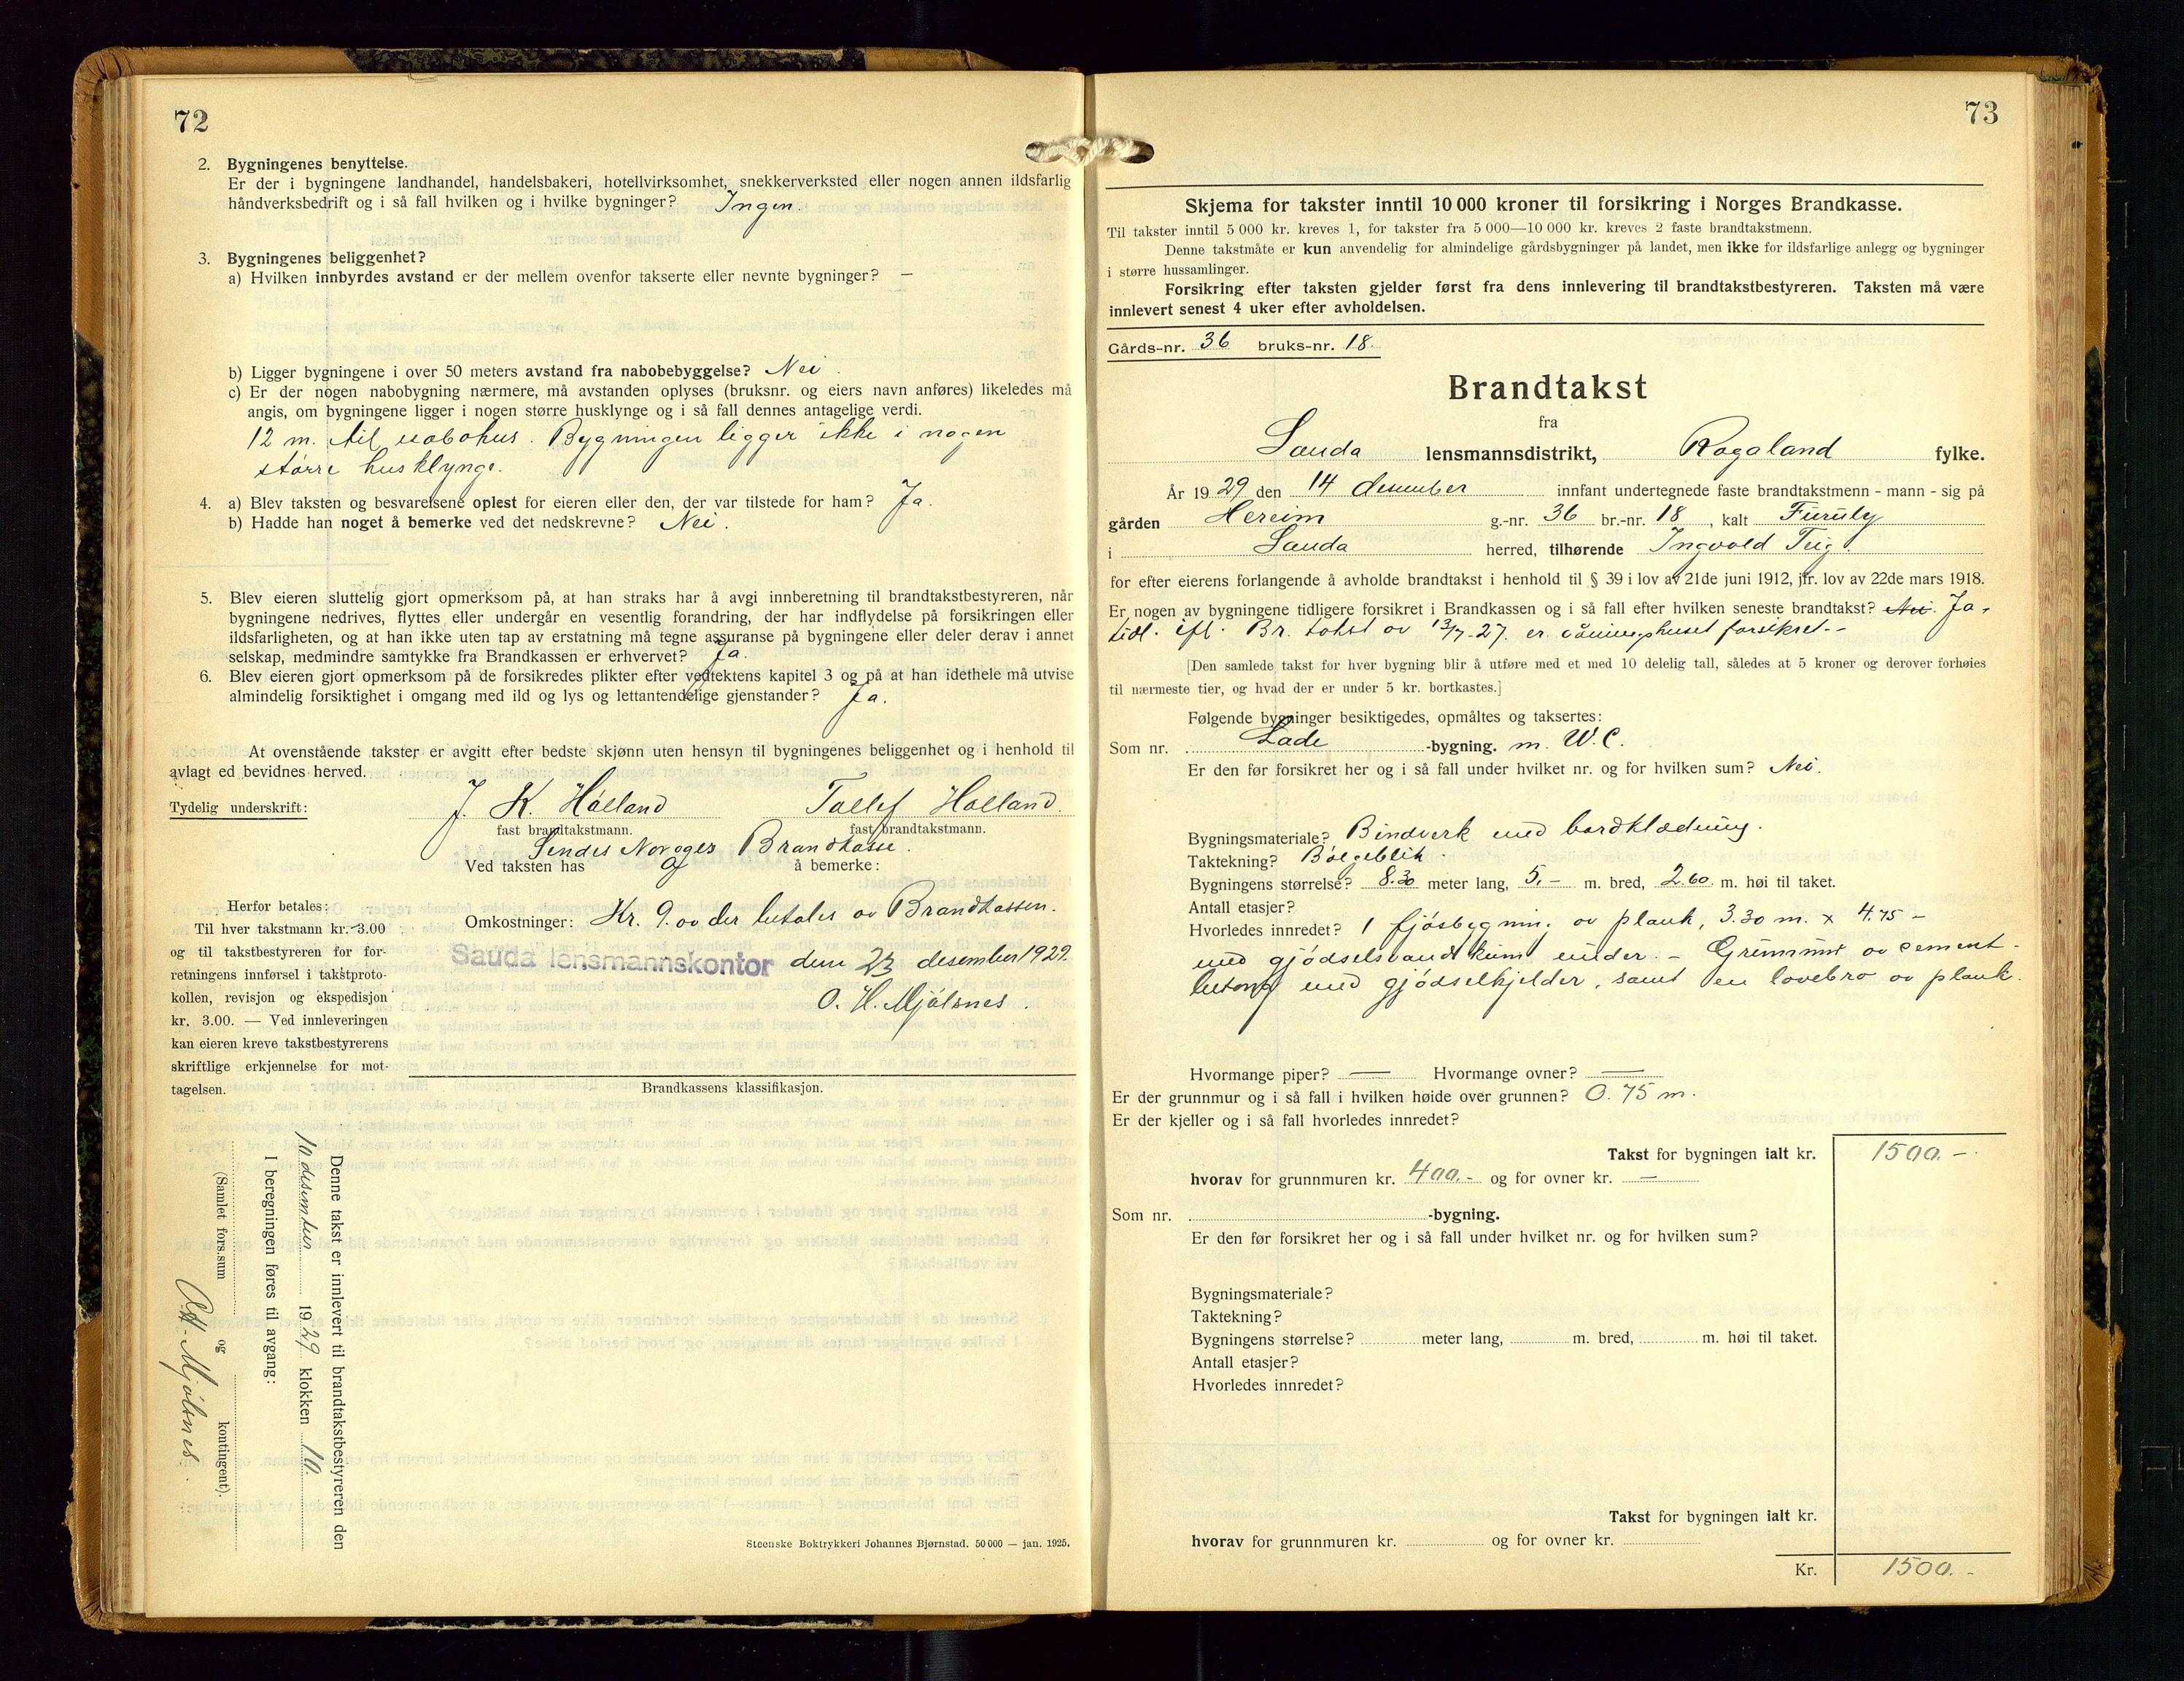 72
2. Bygningenes benyttelse.
Er der i bygningene landhandel, handelsbakeri, hotellvirksomhet, snekkerverksted eller nogen annen ildsfarlig
håndverksbedrift og i så fall hvilken og i hvilke bygninger? Ingen.
3. Bygningenes beliggenhet?
a) Hvilken innbyrdes avstand er der mellem ovenfor takserte eller nevnte bygninger? —
b) Ligger bygningene i over 50 meters avstand fra nabobebyggelse? Nei.
c) Er der nogen nabobygning nærmere, må avstanden oplyses (bruksnr. og eiers navn anføres) likeledes må
angis, om bygningene ligger i nogen større husklynge og i så fall dennes antagelige verdi.
12 m. til nabohus. Bygningen ligger ikke i nogen
større husklynge.
4. a) Blev taksten og besvarelsene oplest for eieren eller den, der var tilstede for ham? Ja.
b) Hadde han noget å bemerke ved det nedskrevne? Nei.
5. Blev eieren sluttelig gjort opmerksom på, at han straks har å avgi innberetning til brandtakstbestyreren, når
bygningene nedrives, flyttes eller undergår en vesentlig forandring, der har indflydelse på forsikringen eller
ildsfarligheten, og at han ikke uten tap av erstatning må tegne assuranse på bygningene eller deler derav i annet
selskap, medmindre samtykke fra Brandkassen er erhvervet? Ja.
6. Blev eieren gjort opmerksom på de forsikredes plikter efter vedtektens kapitel 3 og på at han idethele må utvise
almindelig forsiktighet i omgang med ild og lys og lettantendelige gjenstander? Ja.
At ovenstående takster er avgitt efter bedste skjønn uten hensyn til bygningenes beliggenhet og i henhold til
avlagt ed bevidnes herved.
Tydelig underskrift: J. K. Hålland Tollef Halland.
fast brandtakstmann. fast brandtakstmann.
Sendes Norges Brandkasse.
Ved taksten has å bemerke:
Omkostninger: Kr. 9.00 der betales av Brandkassen.
Sauda lensmannskontor den 23 desember 1929.
O. H. Mjølsnes.
Herfor betales:
Til hver takstmann kr. 3.00
og til takstbestyreren for for-
retningens innførsel i takstproto-
kollen, revisjon og ekspedisjon
kr. 3.00. — Ved innleveringen
kan eieren kreve takstbestyrerens
skriftlige erkjennelse for mot-
tagelsen.
Brandkassens klassifikasjon.
Denne takst er innlevert til brandtakstbestyreren den
10 desember 1929 klokken 10.
I beregningen føres til avgang:
(Samlet fors.sum og kontingent).
O.H. Mjølsnes.
Steenske Boktrykkeri Johannes Bjørnstad. 50 000 — jan. 1925.
73
Skjema for takster inntil 10 000 kroner til forsikring i Norges Brandkasse.
Til takster inntil 5 000 kr. kreves 1, for takster fra 5 000—10 000 kr. kreves 2 faste brandtakstmenn.
Denne takstmåte er kun anvendelig for almindelige gårdsbygninger på landet, men ikke for ildsfarlige anlegg og bygninger
i større hussamlinger.
Forsikring efter taksten gjelder først fra dens innlevering til brandtakstbestyreren. Taksten må være
innlevert senest 4 uker efter avholdelsen.
Gårds-nr. 36 bruks-nr. 18.
Brandtakst
fra
Sauda lensmannsdistrikt, Rogaland fylke.
År 1929 den 14 desember innfant undertegnede faste brandtakstmenn - mann - sig på
gården Hereim g.-nr. 36 br.-nr. 18, kalt Furuly
i Sauda herred, tilhørende Ingvald Teig.
for efter eierens forlangende å avholde brandtakst i henhold til § 39 i lov av 21de juni 1912, jfr. lov av 22de mars 1918.
Er nogen av bygningene tidligere forsikret i Brandkassen og i så fall efter hvilken seneste brandtakst? Nei. Ja,
tidl. ifl. Br. takst av 13/7-27. er våningshuset forsikret.-
[Den samlede takst for hver bygning blir å utføre med et med 10 delelig tall, således at 5 kroner og derover forhøies
til nærmeste tier, og hvad der er under 5 kr. bortkastes.]
Følgende bygninger besiktigedes, opmåltes og taksertes:
Som nr. Lade -bygning. m. W.C.
Er den før forsikret her og i så fall under hvilket nr. og for hvilken sum? Nei.
Bygningsmateriale? Bindverk med bordklædning.
Taktekning? Bølgeblik.
Bygningens størrelse? 8.30 meter lang, 5.- m. bred, 2.60 m. høi til taket.
Antall etasjer?
Hvorledes innredet? 1 fjøsbygning av plank, 3.30 m. x 4.75 -
med gjødselsvandkum under. - Grunnmur av cement-
betong med gjødselkjelder, samt en lovebro av plank.
Hvormange piper? — Hvormange ovner? —
Er der grunnmur og i så fall i hvilken høide over grunnen? 0.75 m.
Er der kjeller og i så fall hvorledes innredet?
Takst for bygningen ialt kr. 1500.-
hvorav for grunnmuren kr. 400.- og for ovner kr. —
Som nr. -bygning.
Er den før forsikret her og i så fall under hvilket nr. og for hvilken sum?
Bygningsmateriale?
Taktekning?
Bygningens størrelse? meter lang, m. bred, m. høi til taket.
Antall etasjer?
Hvorledes innredet?
Takst for bygningen ialt kr.
hvorav for grunnmuren kr. og for ovner kr.
Kr. 1500.-